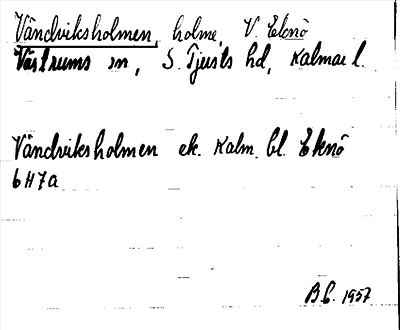 Vändviksholmen, holme, V. Eknö
Västrums sn, S. Tjusts hd, Kalmar l.
Vändviksholmen ek. Kalm. bl. Eknö
6H7a
B.C. 1957